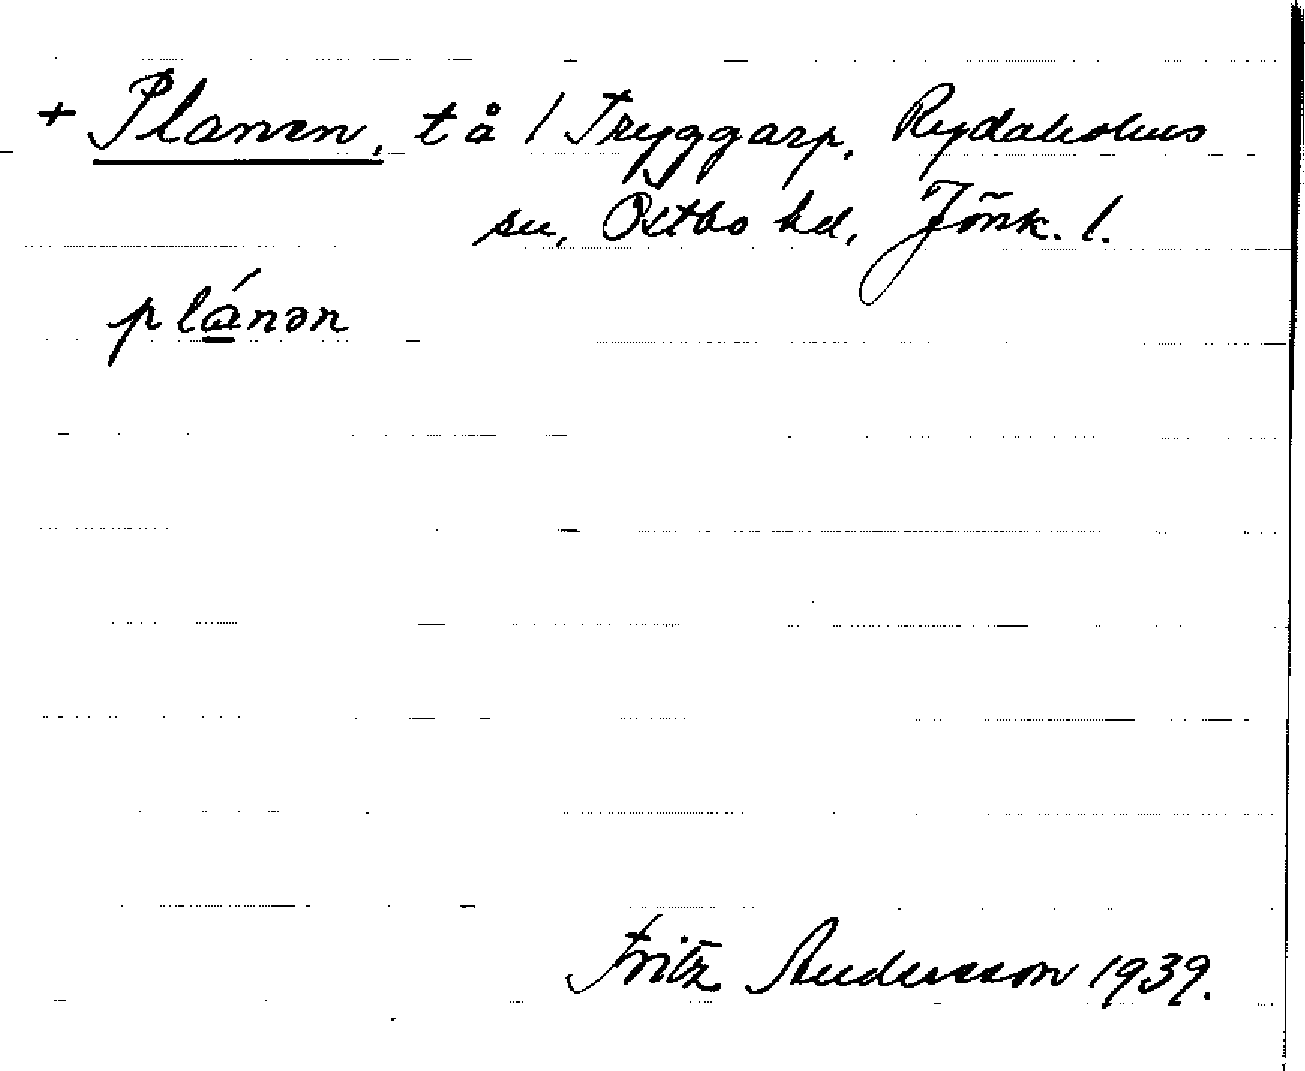 + Planen, tå / Tryggarp, Rydaholms
sn, Östbo hd, Jönk. l.
plánən
Fritz Andersson 1939.